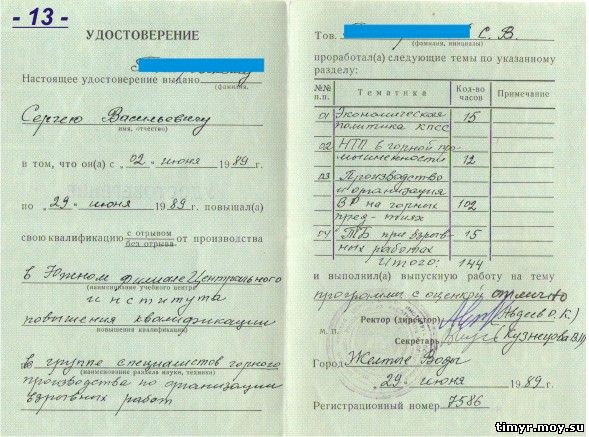 - 13 -
УДОСТОВЕРЕНИЕ
Настоящее удостоверение выдано
(фамилия,
Сергею Васильевичу
имя, отчество)
в том, что он(а) с „02„ июня 1989 г.
по „29„ июня 1989 г. повышал(а)
свою квалификацию с отрывом
без отрыва от производства
в Южном филиале Центрального
(наименование учебного центра)
института
повышения квалификации
повышения квалификации)
в группе специалистов горного
(наименование раздела науки, техники)
производства по организации
взрывных работ
Тов. С. В.
(фамилия, инициалы)
проработал(а) следующие темы по указанному
разделу:
№№ п.п. Тематика Кол-во часов Примечание
01 Экономическая политика КПСС 15
02 НТП в горной промышленности 12
03 Производство и организация ВР на горных пред-тиях 102
04 ТБ при взрывных работах 15
Итого: 144
и выполнил(а) выпускную работу на тему
программы с оценкой отлично
Ректор (директор) (Авдеев О.К.)
М. П.
Секретарь (Кузнецова В.П.)
Город Желтые Воды
„29„ июня 1989 г.
Регистрационный номер 7586
timyr.moy.su